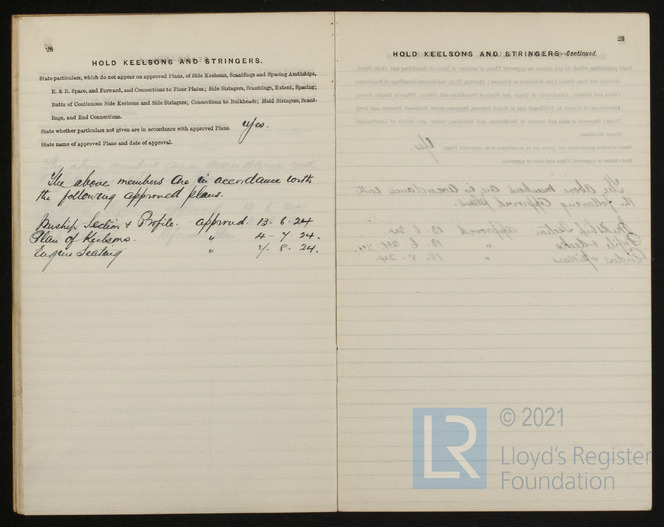 28
HOLD KEELSONS AND STRINGERS.
State particulars, which do not appear on approved Plans, of Side Keelsons, Scantlings and Spacing Amidships,
E. & B. Space, and Forward, and Connections to Floor Plates; Side Stringers, Scantlings, Extent, Spacing;
Butts of Continuous Side Keelsons and Side Stringers; Connections to Bulkheads; Hold Stringers, Scant-
lings, and End Connections.
State whether particulars not given are in accordance with approved Plans. Yes.
State name of approved Plans and date of approval.
The above members are in accordance with
the following approved plans.
Midship Section & Profile. approved. 13-6-24
Plan of Keelsons. " 4-7-24.
Engine Seating " -8-24.
29
HOLD KEELSONS AND STRINGERS—Continued.
© 2021
LR
Lloyd's Register
Foundation